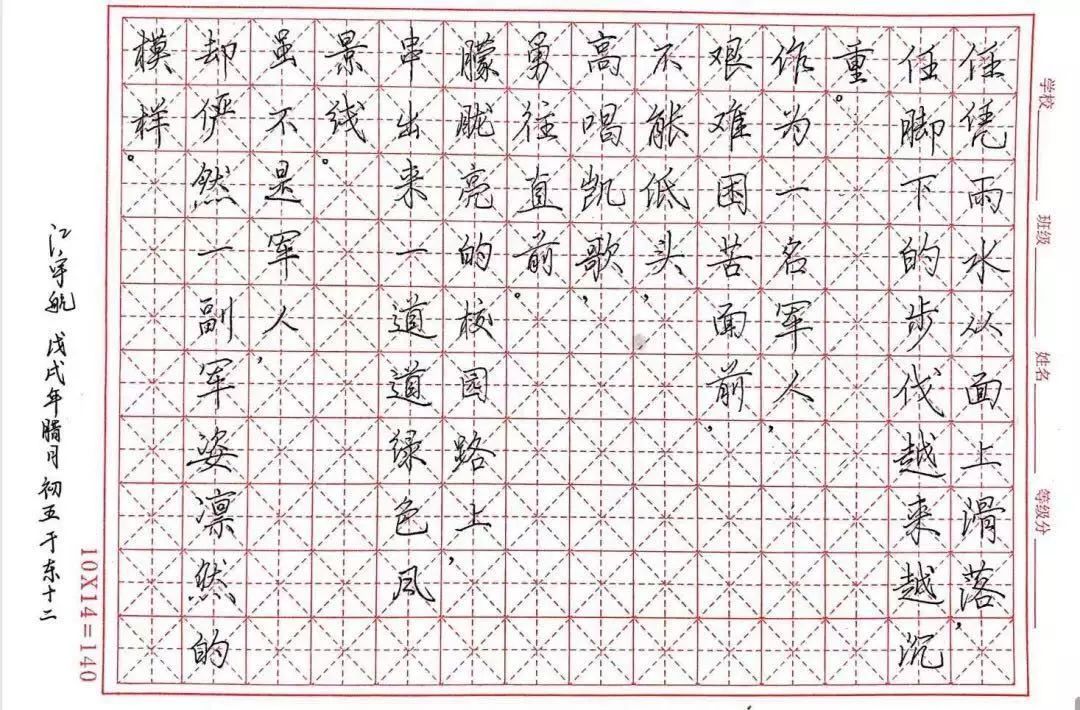 任凭雨水从面上滑落，
任脚下的步伐越来越沉
重。
作为一名军人，
艰难困苦面前，
不能低头，
高唱凯歌，
勇往直前。
朦胧亮的校园路上，
串出来一道道绿色风
景线。
虽不是军人，
却俨然一副军姿凛然的
模样。
江宇航 戊戌年腊月初五于东十二
学校
班级
姓名
等级分
10X14=140